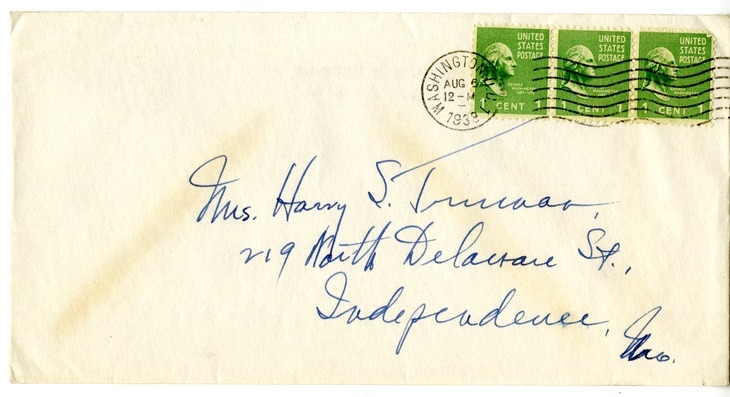 UNITED STATES POSTAGE
UNITED STATES POSTAGE
UNITED STATES POSTAGE
GEORGE WASHINGTON
1 CENT 1
1 CENT 1
1 CENT 1
WASHINGTON
AUG 6
12-M
1938
Mrs. Harry S. Truman,
219 North Delaware St.,
Independence,
Mo.